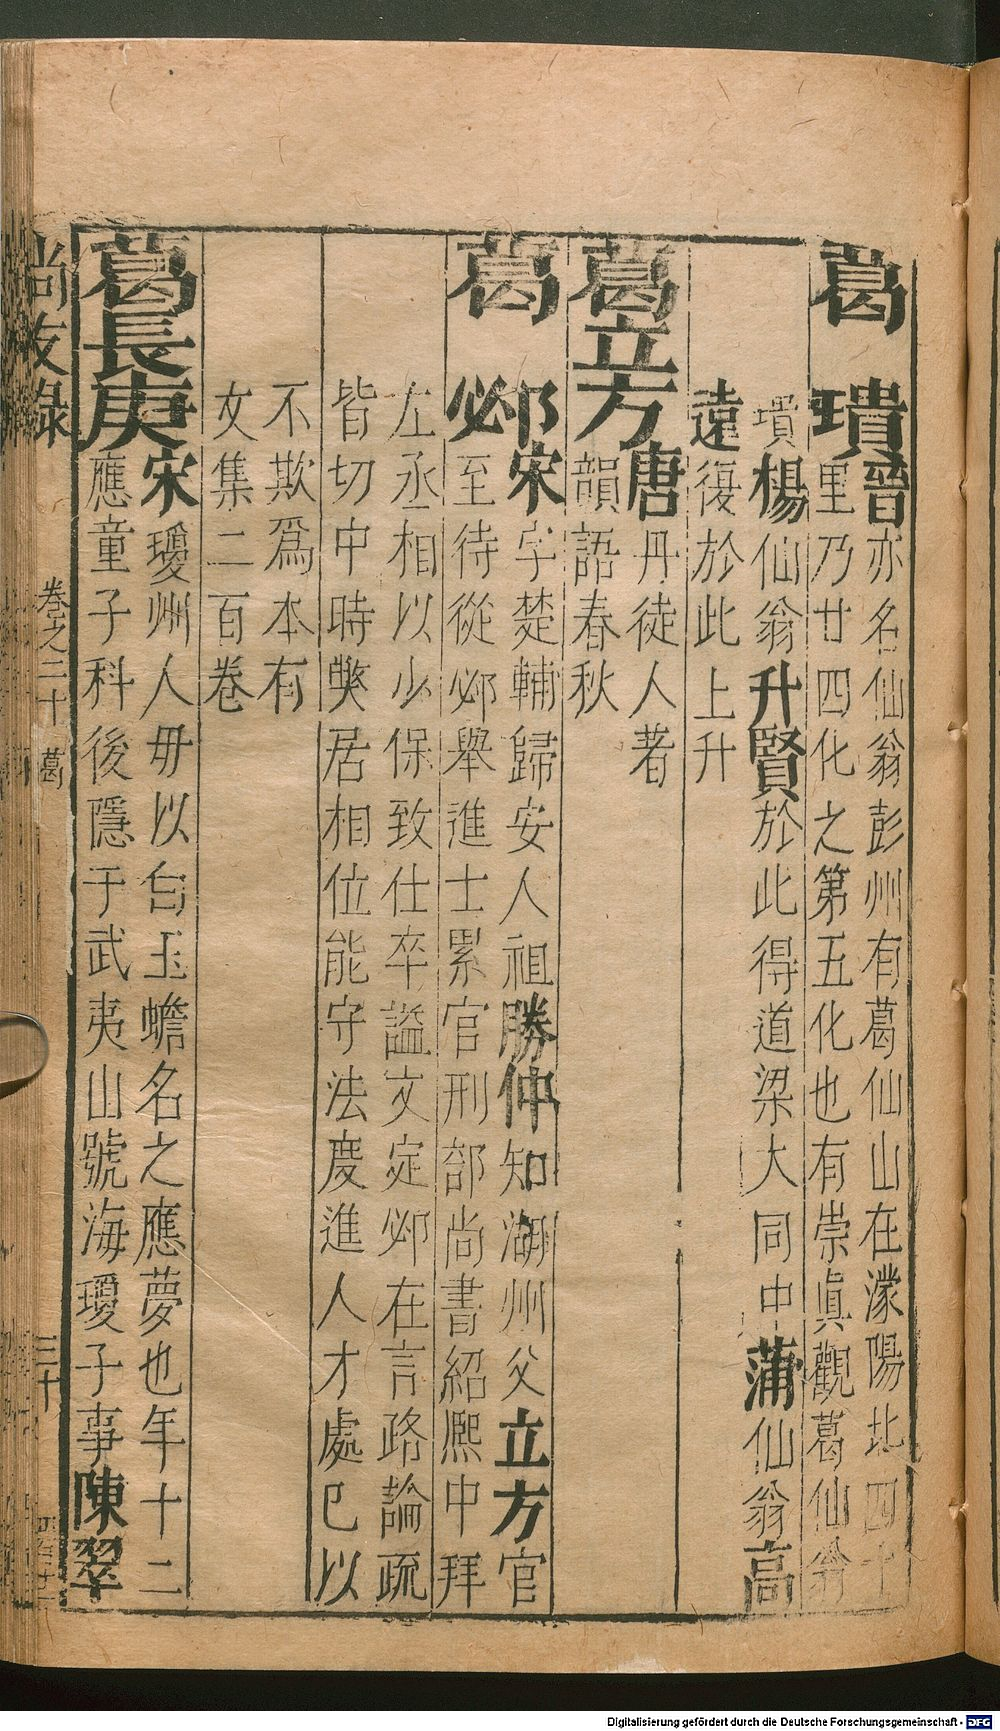 葛　璝晉亦名仙翁彭州有葛仙山在濛陽北四十
里乃廿四化之第五化也有崇眞觀葛仙翁
璝楊仙翁升賢於此得道梁大同中蒲仙翁高
遠復於此上升
葛立方唐丹徒人著
韻語春秋
葛　邲宋字楚輔歸安人祖勝仲知湖州父立方官
至待從邲舉進士累官刑部尚書紹熈中拜
左丞相以少保致仕卒謚文定邲在言路論疏
皆切中時獘居相位能守法度進人才處巳以
不欺爲本有
文集二百卷
葛長庚宋瓊州人毋以白玉蟾名之應夢也年十二
應童子科後隱于武夷山號海瓊子事陳翠
尚友錄　卷之二十　葛　三十
Digitalisierung gefördert durch die Deutsche Forschungsgemeinschaft - DFG